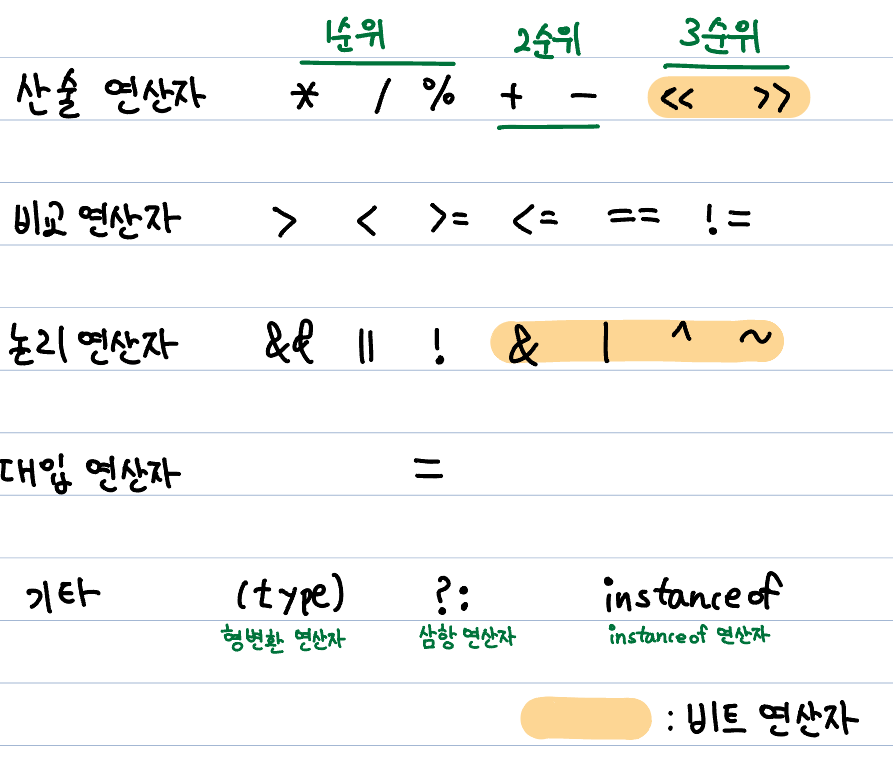 1순위 2순위 3순위
산술 연산자 * / % + - << >>
비교 연산자 > < >= <= == !=
논리 연산자 && || ! & | ^ ~
대입 연산자 =
기타 (type) ?: instanceof
형변환 연산자 삼항 연산자 instanceof 연산자
: 비트 연산자